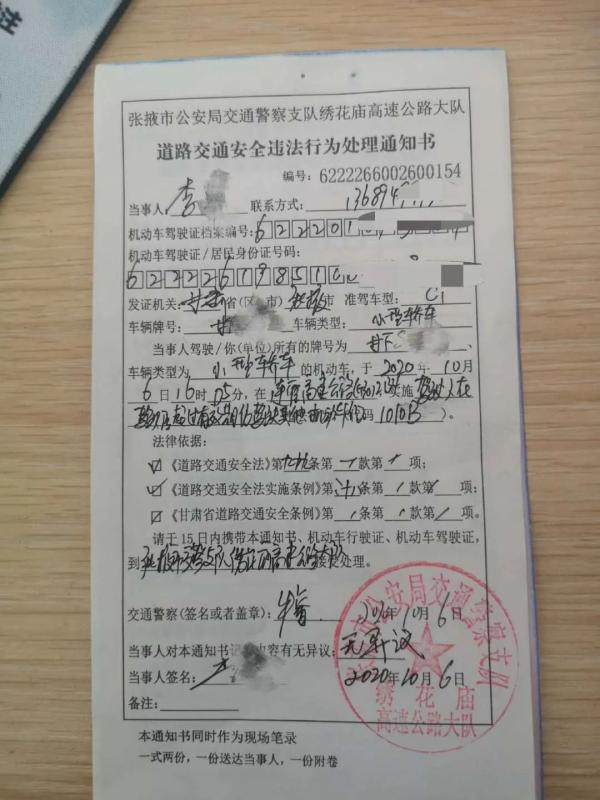 张掖市公安局交通警察支队绣花庙高速公路大队
道路交通安全违法行为处理通知书
编号: 6222266002600154
当事人: 李 联系方式: 136894
机动车驾驶证档案编号: 622201
机动车驾驶证/居民身份证号码:
622226198510
发证机关: 甘肃省(区、市) 张掖市 准驾车型: C1
车辆牌号: 甘 车辆类型: 小型轿车
当事人驾驶/你(单位)所有的牌号为 、
车辆类型为 小型轿车 的机动车, 于 2020 年 10 月
6 日 16 时 05 分, 在 连霍高速公路 实施 驾驶人在
驾驶证超过有效期仍驾驶机动车 代码 1010B )。
法律依据:
《道路交通安全法》第 条第 款第 项;
《道路交通安全法实施条例》第 条第 款第 项;
《甘肃省道路交通安全条例》第 条第 款第 项。
请于15日内携带本通知书、机动车行驶证、机动车驾驶证,
到 张掖市交警支队绣花庙高速公路大队 接受处理。
交通警察(签名或者盖章): 2020年10月6日
当事人对本通知书记载内容有无异议: 无异议
当事人签名: 2020年10月6日
备注:
张掖市公安局交通警察支队
绣花庙
高速公路大队
本通知书同时作为现场笔录
一式两份, 一份送达当事人, 一份附卷